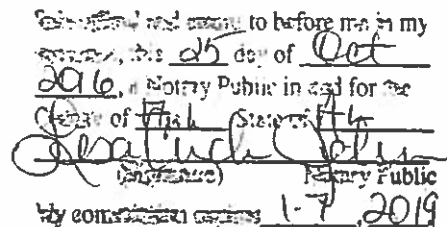 Subscribed and sworn to before me in my
presence, this 25 day of Oct
2016, a Notary Public in and for the
County of State of
(Signature) Notary Public
My commission expires 1-7, 2019